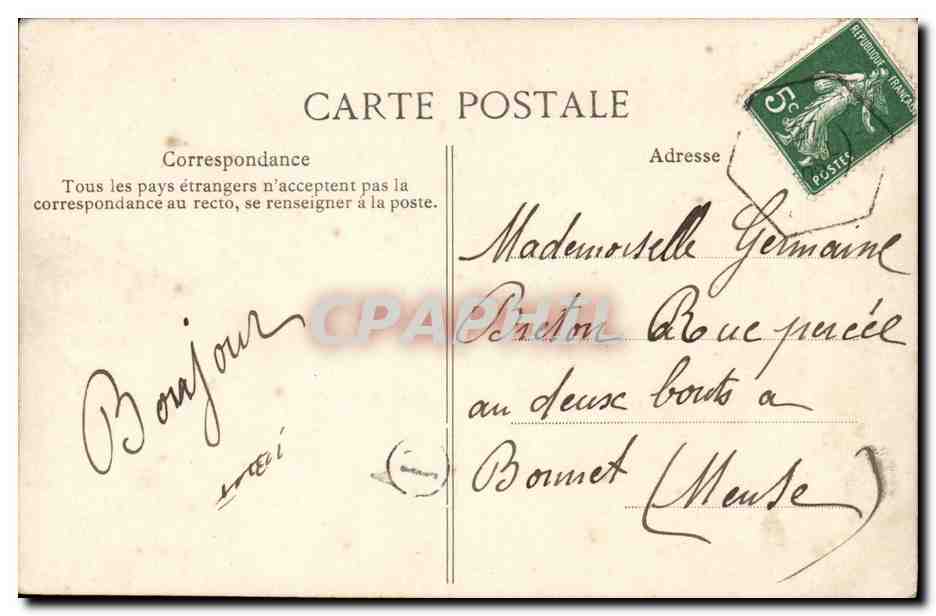 CARTE POSTALE
Correspondance
Tous les pays étrangers n'acceptent pas la
correspondance au recto, se renseigner à la poste.
Adresse
REPUBLIQUE FRANÇAISE
5c
POSTES
Bonjour
Mademoiselle Germaine
Breton Rue percée
au deux bouts a
Bonnet (Meuse)
1
CPAPHIL